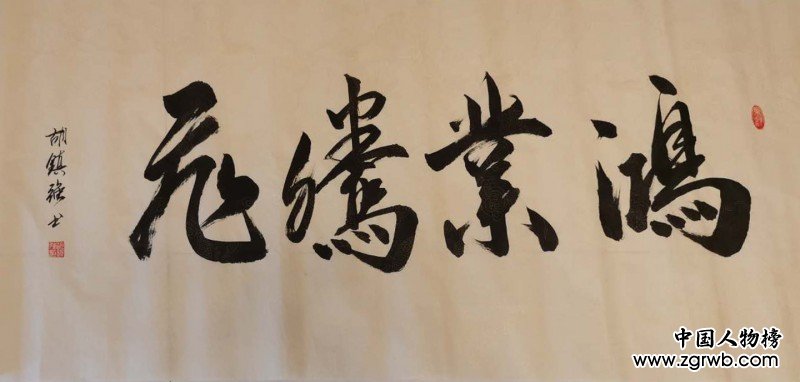 鴻業騰飛
胡鎮強书
中国人物榜
www.zgrwb.com